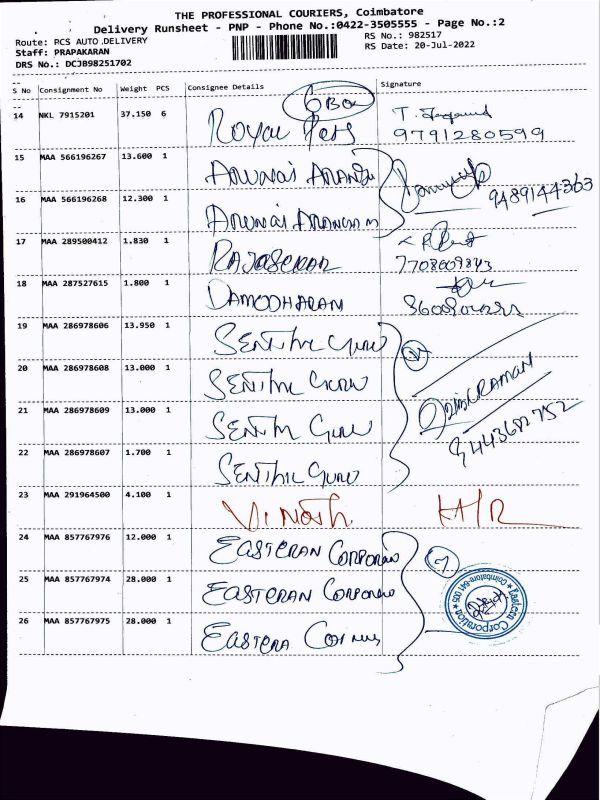 THE PROFESSIONAL COURIERS, Coimbatore
Delivery Runsheet - PNP - Phone No.:0422-3505555 - Page No.:2
Route: PCS AUTO DELIVERY
RS No.: 982517
Staff: PRAPAKARAN
RS Date: 20-Jul-2022
DRS No.: DCJB98251702
S No Consignment No Weight PCS Consignee Details Signature
6 Box
14 NKL 7915201 37.150 6 Royal
9791280599
15 MAA 566196267 13.600 1 ARUNAI
9489144363
16 MAA 566196268 12.300 1 ARUNAI
17 MAA 289500412 1.830 1 RAJASEKAR
18 MAA 287527615 1.800 1 DAMODHARAN
19 MAA 286978606 13.950 1 SENTHIL GURU
20 MAA 286978608 13.000 1 SENTHIL GURU
21 MAA 286978609 13.000 1 SENTHIL GURU
22 MAA 286978607 1.700 1 SENTHIL GURU
23 MAA 291964500 4.100 1 VINOTH H/R
24 MAA 857767976 12.000 1 EASTERAN
25 MAA 857767974 28.000 1 EASTERAN
26 MAA 857767975 28.000 1 EASTERN
Eastern Corporation
Coimbatore-641 005